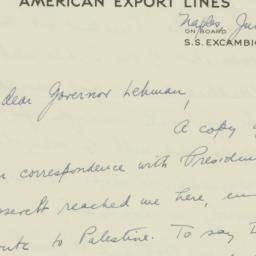 AMERICAN EXPORT LINES
Naples, Ju
ON BOARD
S.S. EXCAMBIO
dear Governor Lehman,
A copy
correspondence with Presiden
reached me here, en
to Palestine. To say